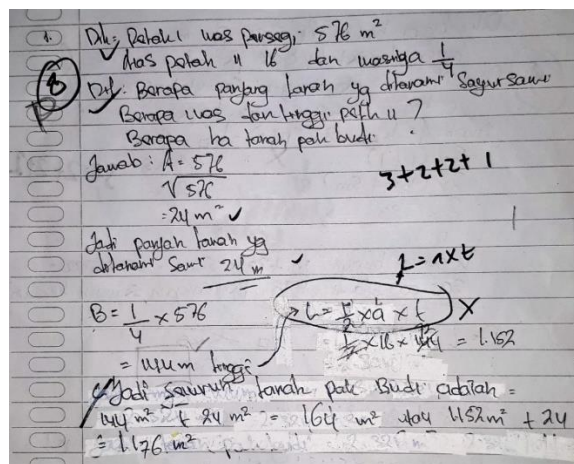 1. Dik: Petak I luas persegi 576 m²
Alas petak II 16 dan luasnya 1/4
8
Dit: Berapa panjang tanah yg ditanami Sayur Sawi
Berapa luas dan tinggi petak II ?
Berapa ha tanah pak budi
Jawab : A = 576
√576
= 24 m²
3+2+2+1
Jadi panjah tanah yg
ditanami Sawi 24 m
L = a x t
B = 1/4 x 576
L = 1/2 x a x t X
= 144 m tinggi
1/2 x 16 x 144 = 1.152
Jadi seluruh tanah pak Budi adalah =
144 m² + 24 m² = 164 m² atau 1152 m² + 24
= 1.176 m²